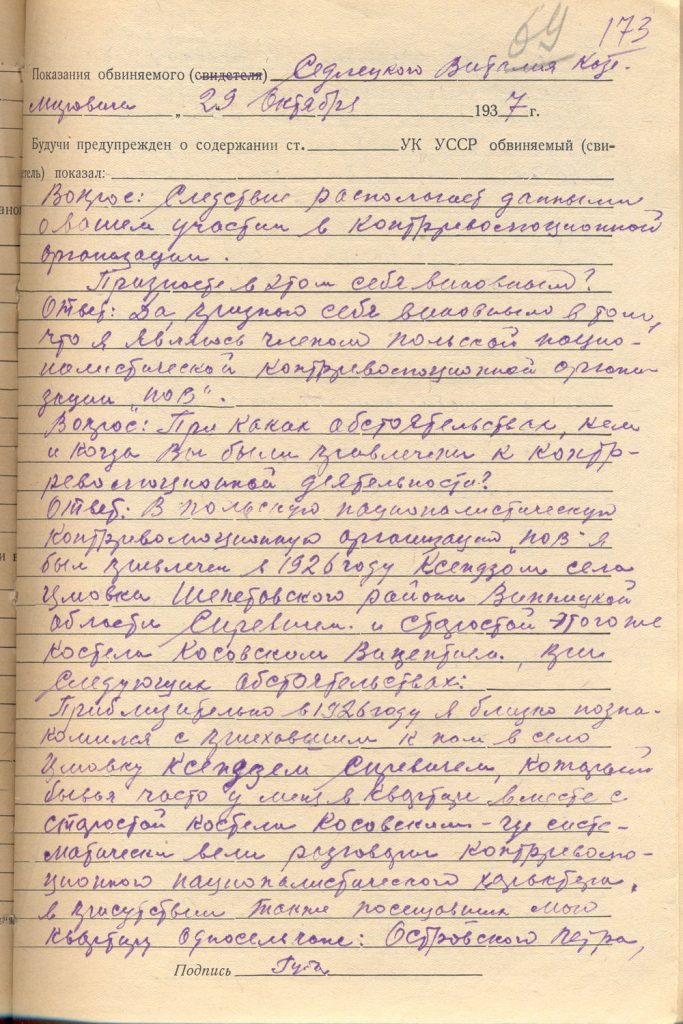 69 173
Показания обвиняемого (свидетеля) Седлецкого Виталия Кази-
мировича „ 29 Октября 1937 г.
Будучи предупрежден о содержании ст. УК УССР обвиняемый (сви-
етель) показал:
Вопрос: Следствие распологает данными
о вашем участии в контрреволюционной
организации.
Признаете в этом себя виновным?
Ответ: Да, признаю себя виновным в том,
что я являюсь членом польской нацио-
налистической контрреволюционной органи-
зации „ПОВ".
Вопрос: При каких абстоятельствах, кем
и когда Вы были привлечены к контр-
революционной деятельности?
Ответ: В польскую националистическую
контрреволюционную организацию „ПОВ" я
был привлечен в 1926 году Ксендзом села
Шепетовского района Винницкой
области и старостой этого же
костела Косовским Викентием, при
следующих абстоятельствах:
Приблизительно в 1926 году я близко позна-
комился с приехавшим к нам в село
Ксендзем который
бывая часто у меня в квартире вместе с
старостой костела Косовским - где систе-
матически вели разговоры контрреволю-
ционного националистического характера,
в присутствии также посещавших мою
квартиру односельчан: Островского Петра,
Подпись